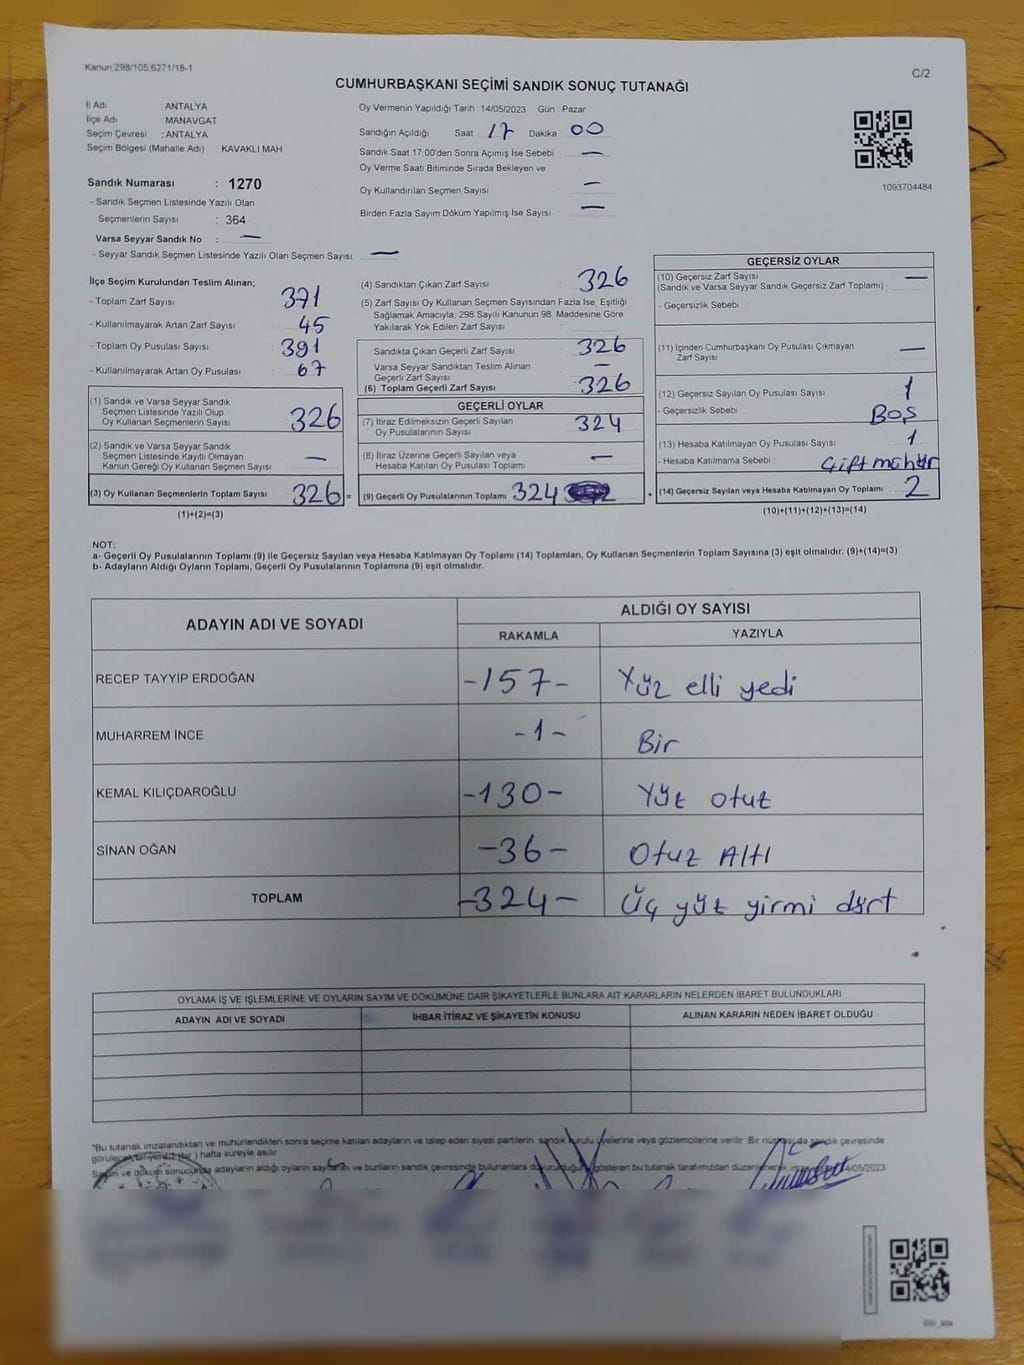 Kanun:298/105;6271/18-1
C/2
CUMHURBAŞKANI SEÇİMİ SANDIK SONUÇ TUTANAĞI
İl Adı : ANTALYA
İlçe Adı : MANAVGAT
Seçim Çevresi : ANTALYA
Seçim Bölgesi (Mahalle Adı) KAVAKLI MAH
Sandık Numarası : 1270
- Sandık Seçmen Listesinde Yazılı Olan
Seçmenlerin Sayısı : 364
Varsa Seyyar Sandık No : —
- Seyyar Sandık Seçmen Listesinde Yazılı Olan Seçmen Sayısı —
Oy Vermenin Yapıldığı Tarih : 14/05/2023 Gün Pazar
Sandığın Açıldığı Saat 17 Dakika 00
Sandık Saat 17:00'den Sonra Açımış İse Sebebi —
Oy Verme Saati Bitiminde Sırada Bekleyen ve
Oy Kullandırılan Seçmen Sayısı —
Birden Fazla Sayım Döküm Yapılmış İse Sayısı —
1093704484
İlçe Seçim Kurulundan Teslim Alınan;
- Toplam Zarf Sayısı 371
- Kullanılmayarak Artan Zarf Sayısı 45
- Toplam Oy Pusulası Sayısı 391
- Kullanılmayarak Artan Oy Pusulası 67
(1) Sandık ve Varsa Seyyar Sandık
Seçmen Listesinde Yazılı Olup
Oy Kullanan Seçmenlerin Sayısı 326
(2) Sandık ve Varsa Seyyar Sandık
Seçmen Listesinde Kayıtlı Olmayan
Kanun Gereği Oy Kullanan Seçmen Sayısı —
(3) Oy Kullanan Seçmenlerin Toplam Sayısı 326 =
(1)+(2)=(3)
(4) Sandıktan Çıkan Zarf Sayısı 326
(5) Zarf Sayısı Oy Kullanan Seçmen Sayısından Fazla İse, Eşitliği
Sağlamak Amacıyla, 298 Sayılı Kanunun 98. Maddesine Göre
Yakılarak Yok Edilen Zarf Sayısı
Sandıkta Çıkan Geçerli Zarf Sayısı 326
Varsa Seyyar Sandıktan Teslim Alınan
Geçerli Zarf Sayısı —
(6) Toplam Geçerli Zarf Sayısı 326
GEÇERLİ OYLAR
(7) İtiraz Edilmeksizin Geçerli Sayılan
Oy Pusulalarının Sayısı 324
(8) İtiraz Üzerine Geçerli Sayılan veya
Hesaba Katılan Oy Pusulası Toplamı —
(9) Geçerli Oy Pusulalarının Toplamı 324 +
GEÇERSİZ OYLAR
(10) Geçersiz Zarf Sayısı —
(Sandık ve Varsa Seyyar Sandık Geçersiz Zarf Toplamı)
- Geçersizlik Sebebi
(11) İçinden Cumhurbaşkanı Oy Pusulası Çıkmayan
Zarf Sayısı —
(12) Geçersiz Sayılan Oy Pusulası Sayısı 1
- Geçersizlik Sebebi Boş
(13) Hesaba Katılmayan Oy Pusulası Sayısı 1
- Hesaba Katılmama Sebebi Çift mühür
(14) Geçersiz Sayılan veya Hesaba Katılmayan Oy Toplamı 2
(10)+(11)+(12)+(13)=(14)
NOT:
a- Geçerli Oy Pusulalarının Toplamı (9) ile Geçersiz Sayılan veya Hesaba Katılmayan Oy Toplamı (14) Toplamları, Oy Kullanan Seçmenlerin Toplam Sayısına (3) eşit olmalıdır. (9)+(14)=(3)
b- Adayların Aldığı Oyların Toplamı, Geçerli Oy Pusulalarının Toplamına (9) eşit olmalıdır.
ADAYIN ADI VE SOYADI ALDIĞI OY SAYISI
RAKAMLA YAZIYLA
RECEP TAYYİP ERDOĞAN -157- Yüz elli yedi
MUHARREM İNCE -1- Bir
KEMAL KILIÇDAROĞLU -130- Yüz otuz
SİNAN OĞAN -36- Otuz Altı
TOPLAM -324- Üç yüz yirmi dört
OYLAMA İŞ VE İŞLEMLERİNE VE OYLARIN SAYIM VE DÖKÜMÜNE DAİR ŞİKAYETLERLE BUNLARA AİT KARARLARIN NELERDEN İBARET BULUNDUKLARI
ADAYIN ADI VE SOYADI İHBAR İTİRAZ VE ŞİKAYETİN KONUSU ALINAN KARARIN NEDEN İBARET OLDUĞU
"Bu tutanak imzalandıktan ve mühürlendikten sonra seçime katılan adayların ve talep eden siyasi partilerin sandık kurulu üyelerine veya gözlemcilerine verilir. Bir nüshası da sandık çevresinde
görülecek bir yere 1 (bir) hafta süreyle asılır
Sayım ve döküm sonucunda adayların aldığı oyların sayısını ve bunların sandık çevresinde bulunanlara duyurulduğunu gösteren bu tutanak tarafımızdan düzenlenerek 14/05/2023